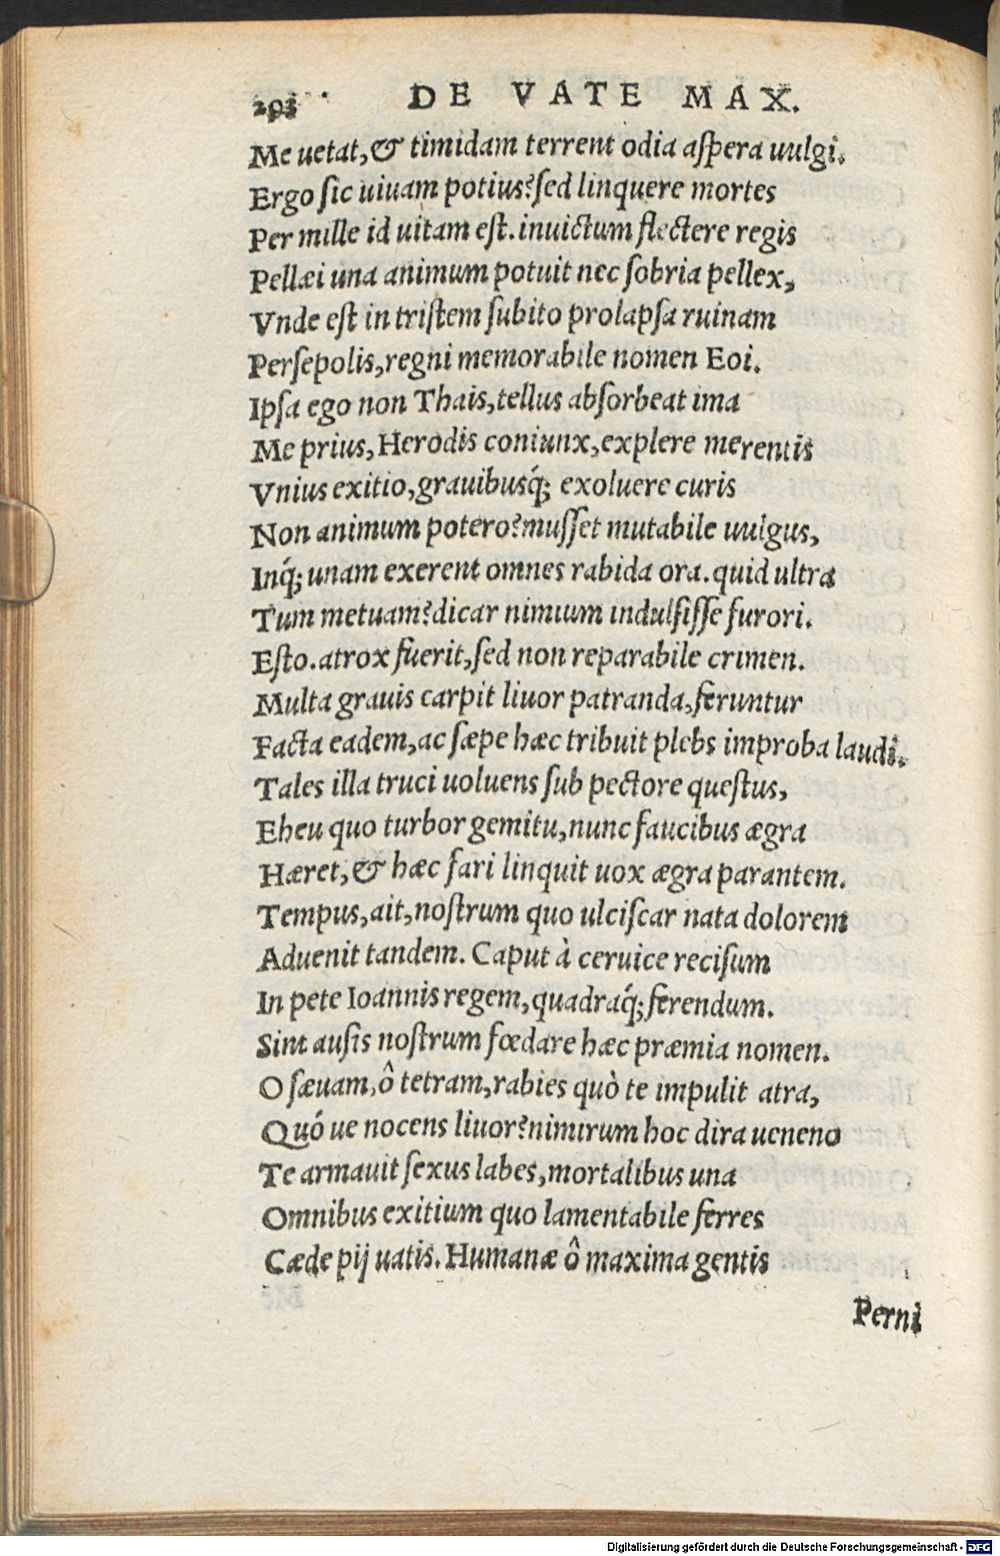 DE VATE MAX.
Me uetat, & timidam terrent odia aſpera uulgi.
Ergo ſic uiuam potius? ſed linquere mortes
Per mille id uitam eſt. inuictum flectere regis
Pellæi una animum potuit nec ſobria pellex,
Vnde eſt in triſtem ſubito prolapſa ruinam
Perſepolis, regni memorabile nomen Eoi.
Ipſa ego non Thais, tellus abſorbeat ima
Me prius, Herodis coniunx, explere merentis
Vnius exitio, grauibusq́; exoluere curis
Non animum potero? muſſet mutabile uulgus,
Inq́; unam exerent omnes rabida ora. quid ultra
Tum metuam? dicar nimium indulſiſſe furori.
Eſto. atrox fuerit, ſed non reparabile crimen.
Multa grauis carpit liuor patranda, feruntur
Facta eadem, ac ſæpe hæc tribuit plebs improba laudi.
Tales illa truci uoluens ſub pectore queſtus,
Eheu quo turbor gemitu, nunc faucibus ægra
Hæret, & hæc fari linquit uox ægra parantem.
Tempus, ait, noſtrum quo ulciſcar nata dolorem
Aduenit tandem. Caput à ceruice reciſum
In pete Ioannis regem, quadraq́; ferendum.
Sint auſis noſtrum fœdare hæc præmia nomen.
O ſæuam, ô tetram, rabies quò te impulit atra,
Quó ue nocens liuor? nimirum hoc dira ueneno
Te armauit ſexus labes, mortalibus una
Omnibus exitium quo lamentabile ferres
Cæde pij uatis. Humanæ ô maxima gentis
Perni
Digitalisierung gefördert durch die Deutsche Forschungsgemeinschaft - DFG